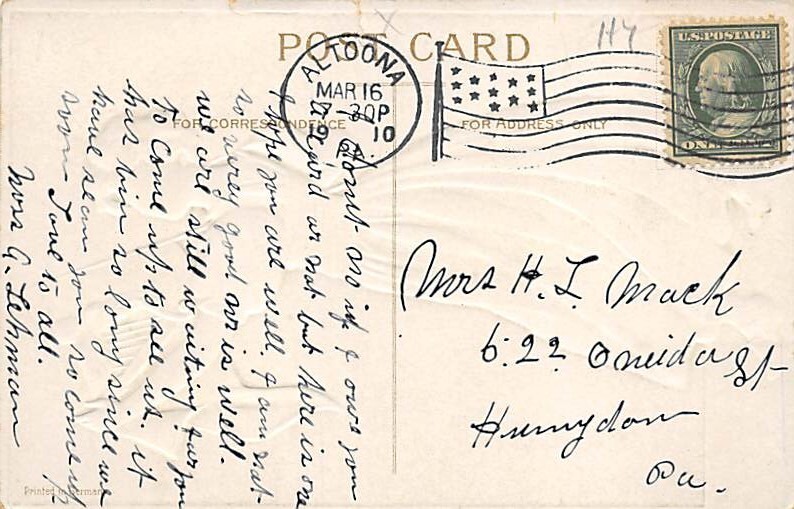 POST CARD
117
U.S. POSTAGE
ALTOONA
MAR 16
7-30P
19 10
FOR CORRESPONDENCE
FOR ADDRESS ONLY
dont no if I owe you
a card or not but here is one
I hope you are well. I am not
so verey good W is well.
we are still waiting for you
to come up to see us. it
has bin so long since we
have sean you so come up
soon love to all.
Mrs A. Lehman
Mrs H. L. Mack
622 Oneida St
Pa.
Printed in Germany